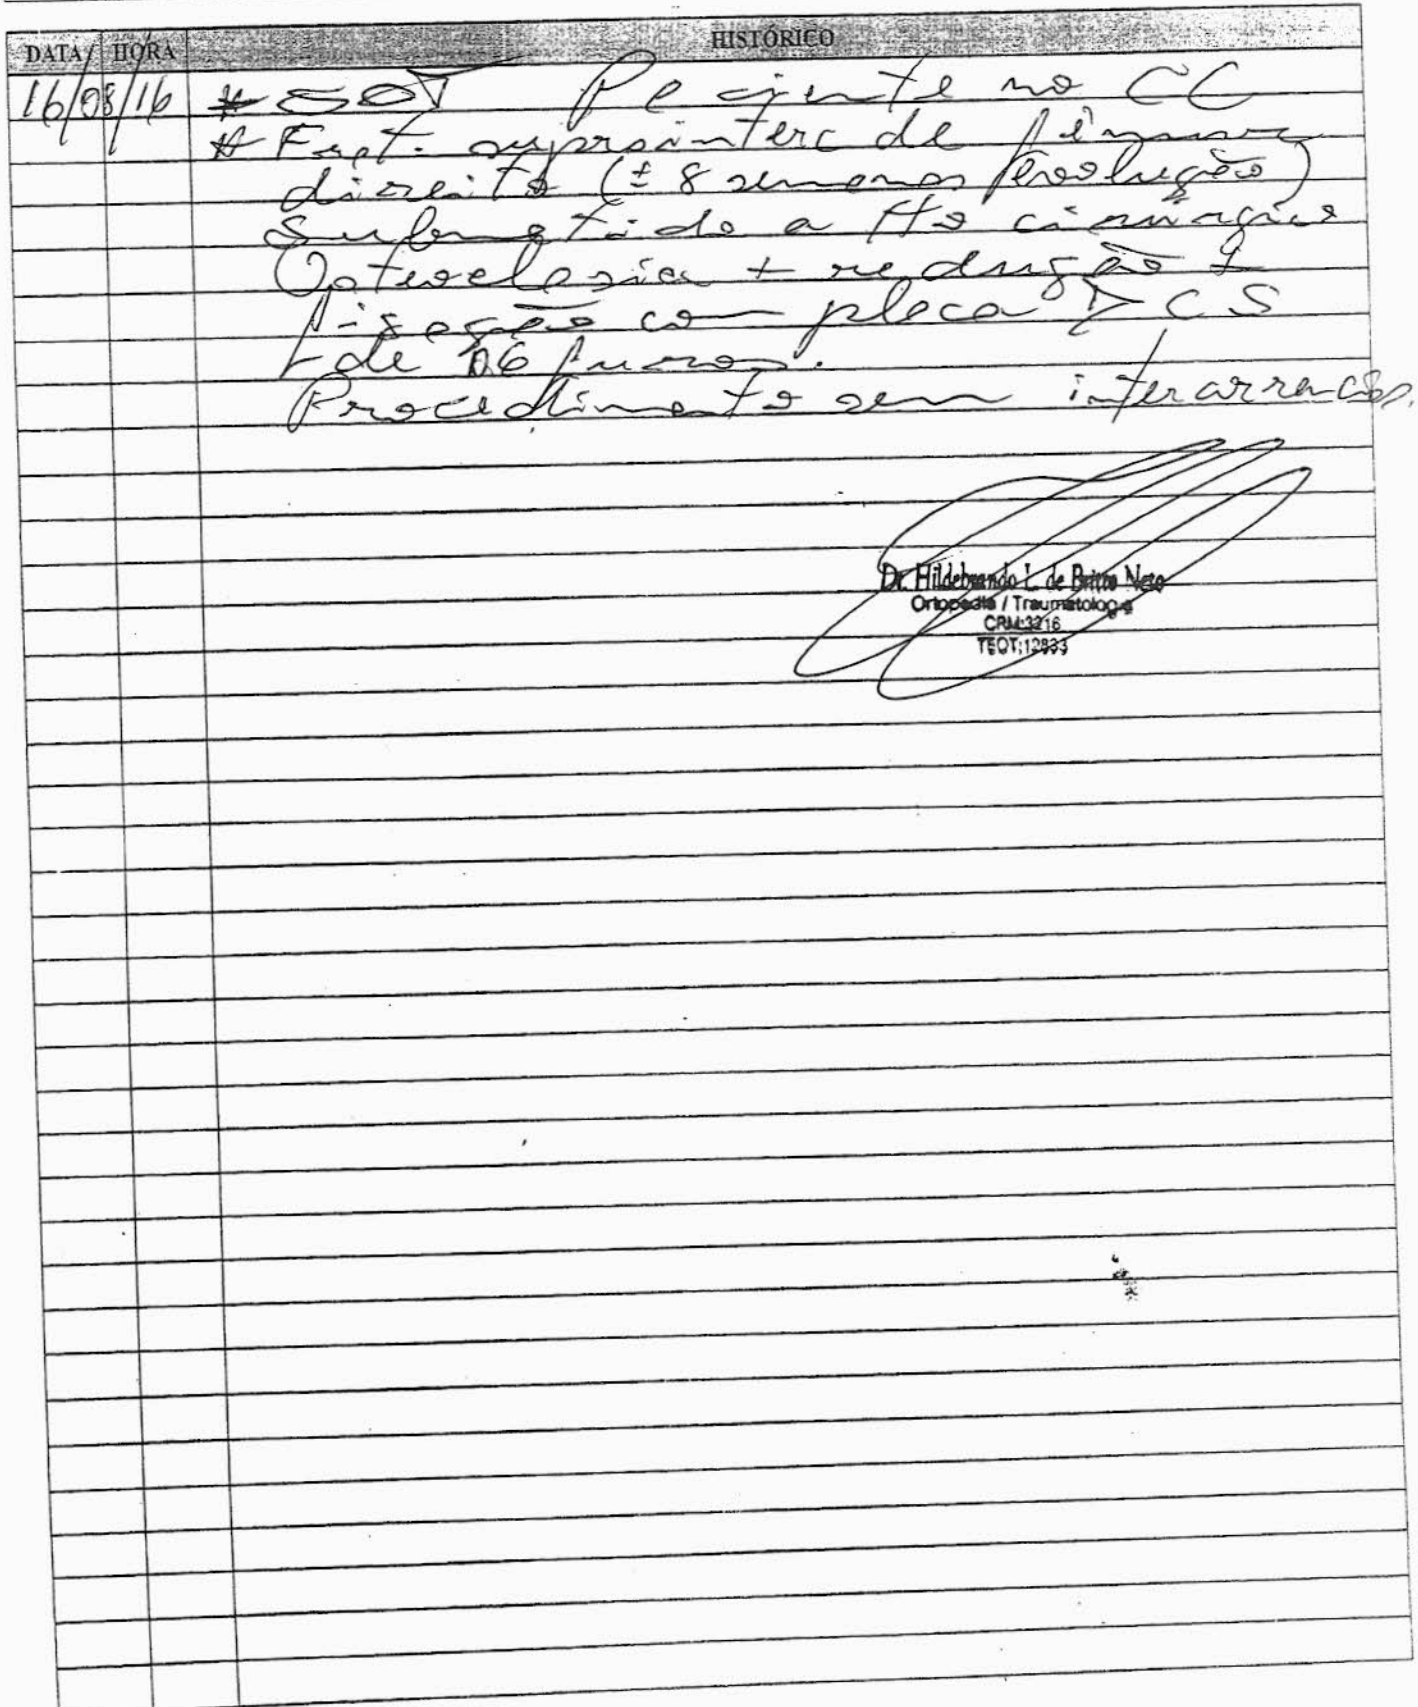 DATA/ HORA HISTÓRICO
16/08/16 # SOT Paciente no CC
# Frat. suprainterc de fêmur
direito (± 8 semanas evolução)
Submetido a tto cirúrgico
Osteoclasia + redução +
fixação com placa DCS
de 06 furos.
Procedimento sem intercorrencias.
Dr. Hildebrando L. de Britto Neto
Ortopedia / Traumatologia
CRM:3216
TEOT:12833